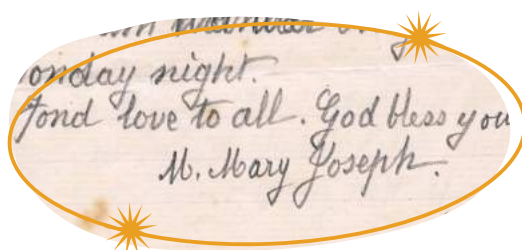 onday night.
Fond love to all. God bless you
M. Mary Joseph.